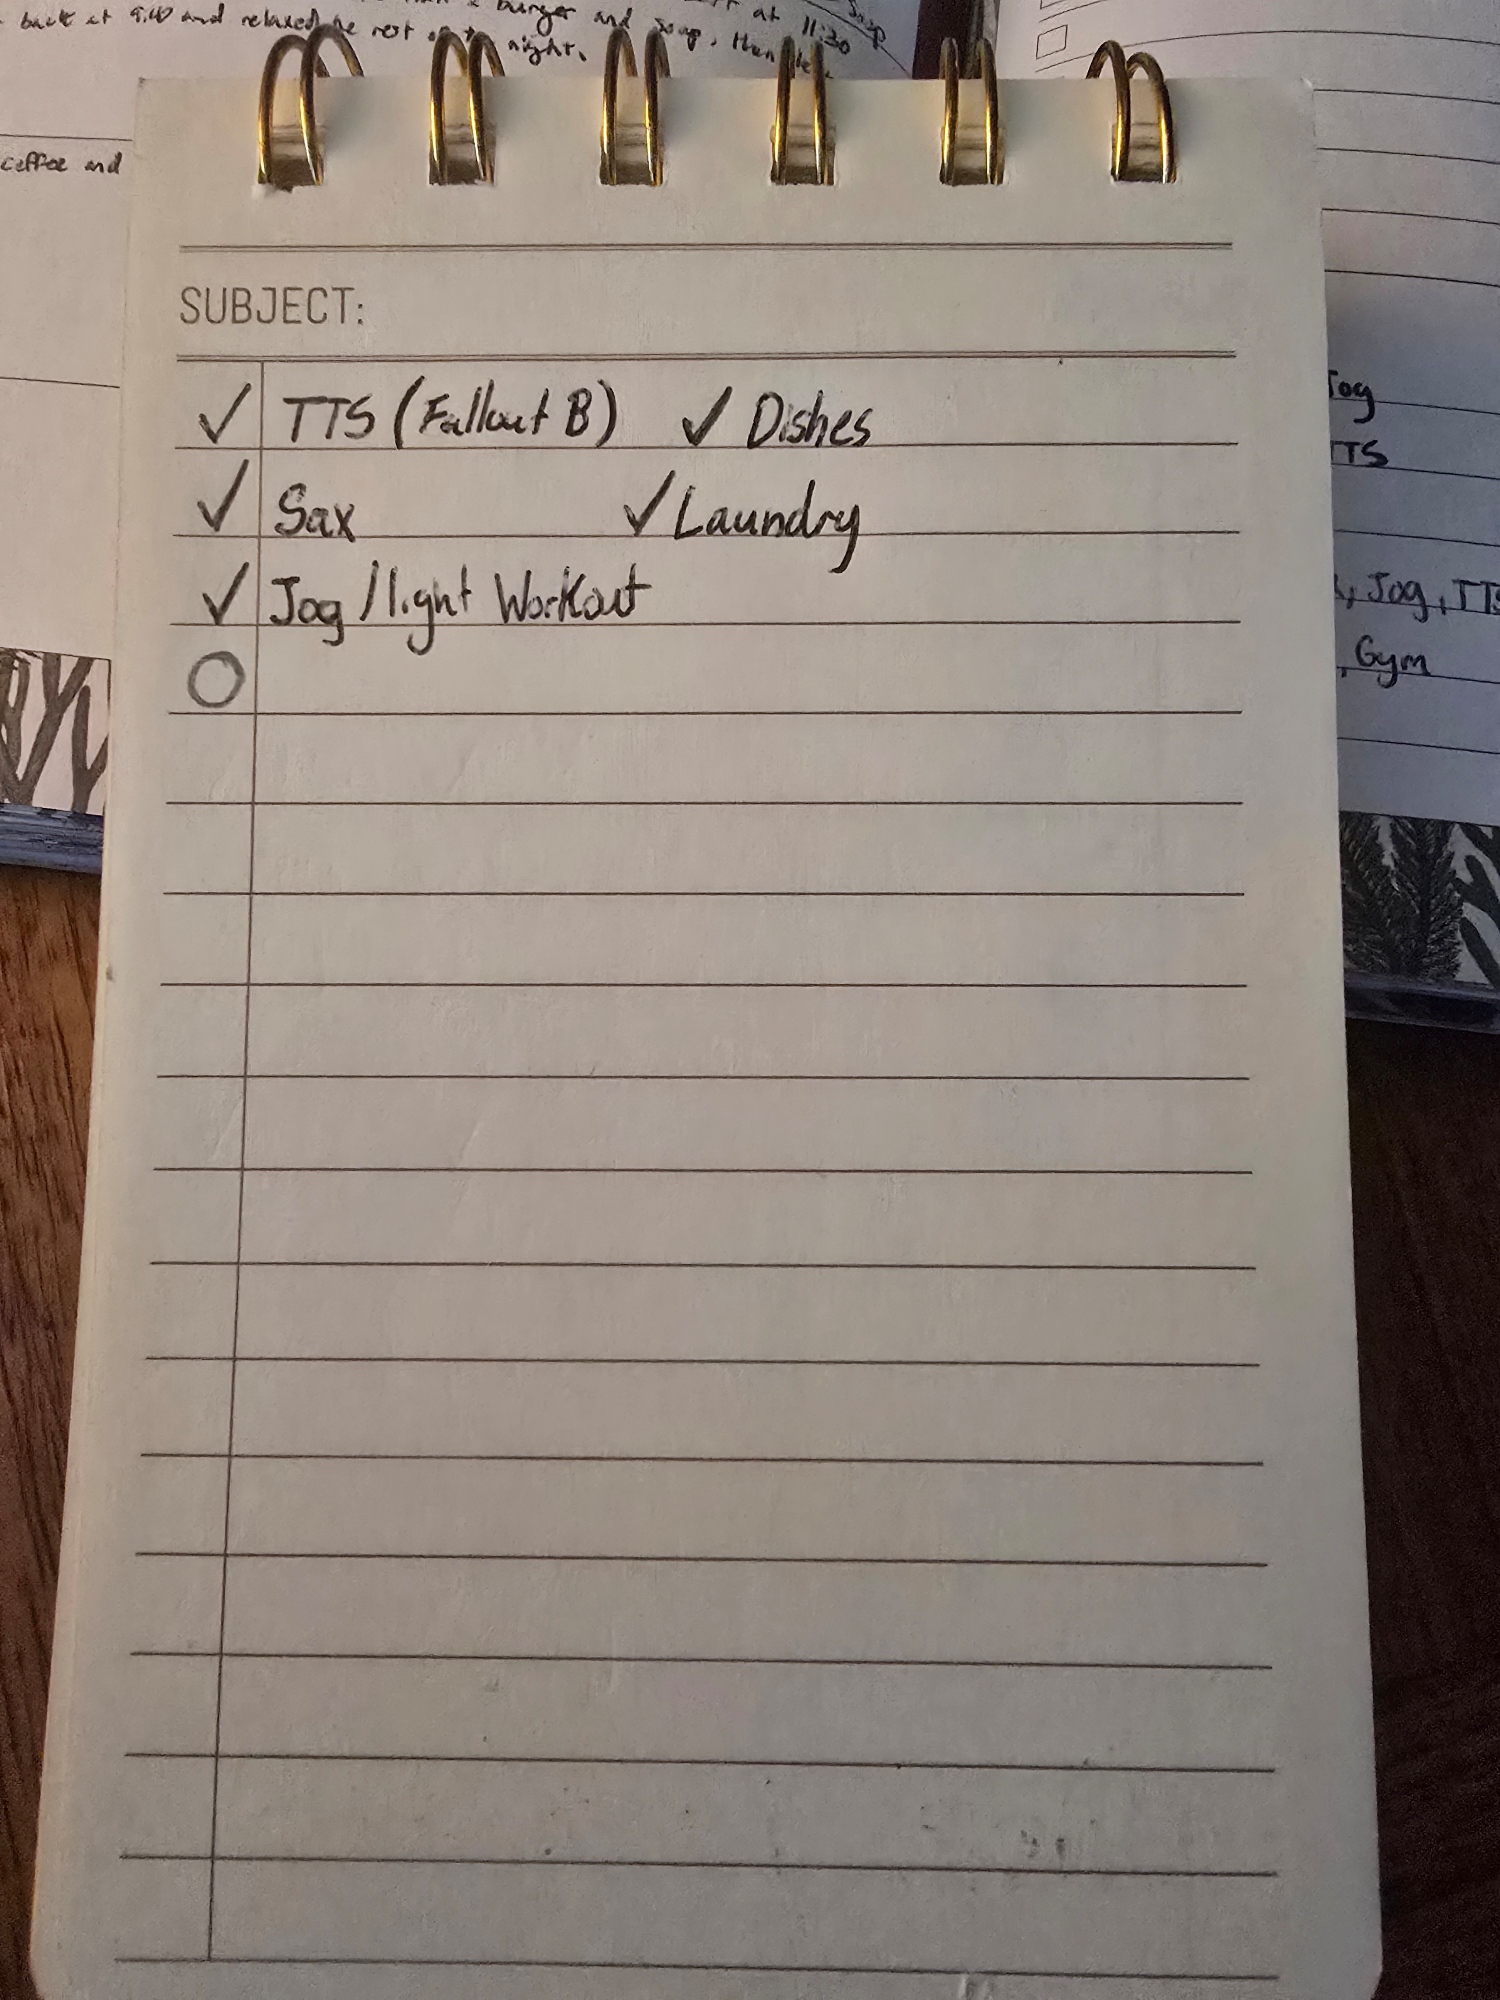 back at 9:40 and relaxed the rest night.
burger and soup, then
at 11:30
coffee and
SUBJECT:
✓ TTS (Fallout B) ✓ Dishes
✓ Sax ✓ Laundry
✓ Jog / light Workout
○
Jog
TTS
, Jog, TTS
, Gym